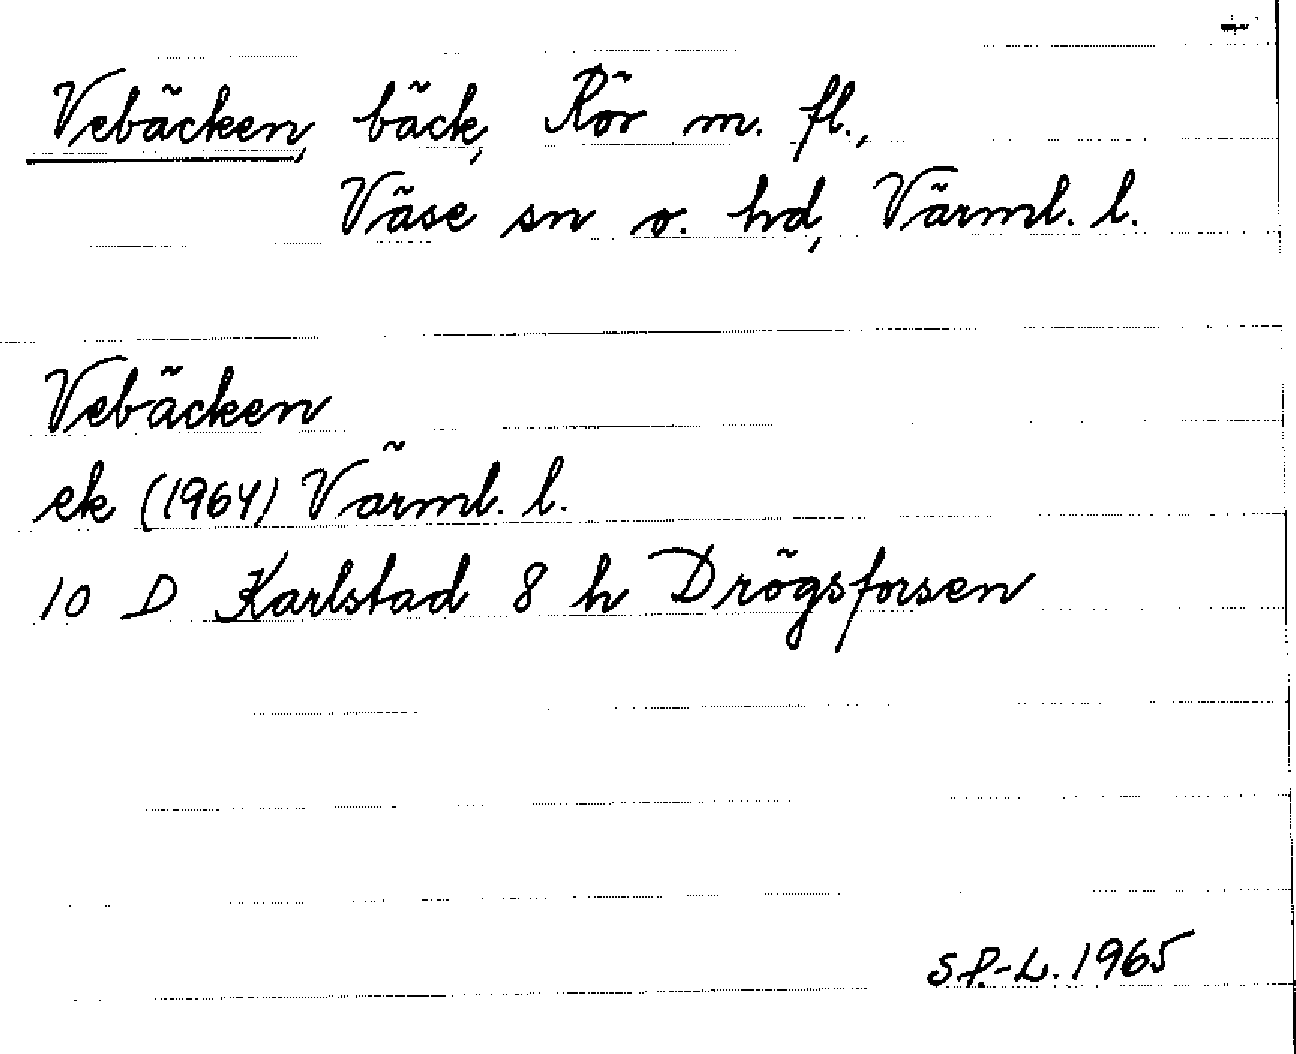 Vebäcken, bäck, Rör m. fl.,
Väse sn o. hd, Värml. l.
Vebäcken
ek (1964) Värml. l.
10 D Karlstad 8 h Drögsforsen
S.P.-L. 1965